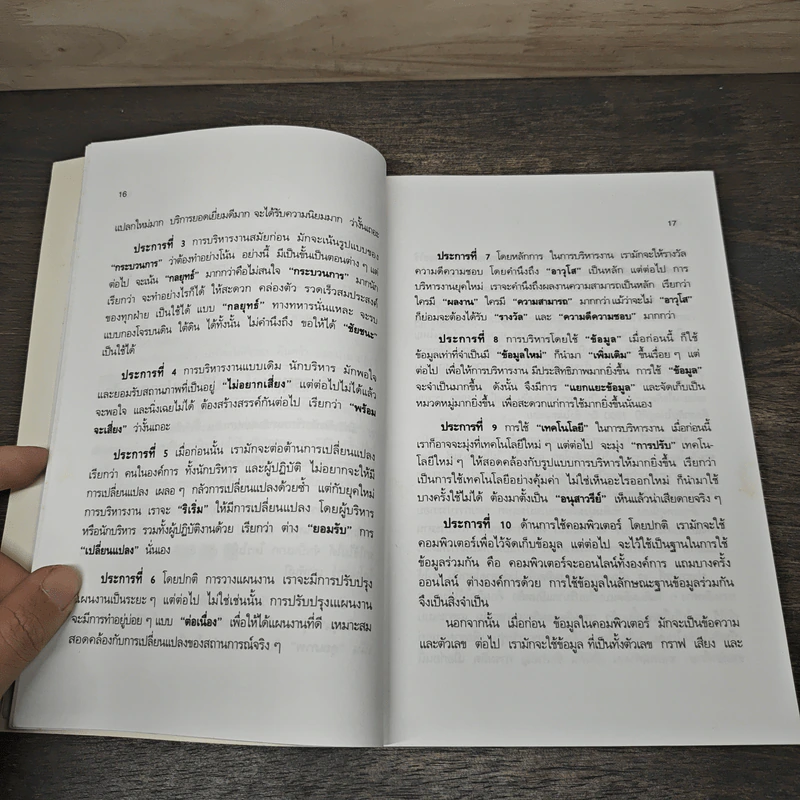 16
แปลกใหม่มาก บริการยอดเยี่ยมดีมาก จะได้รับความนิยมมาก ว่างั้นเถอะ
ประการที่ 3 การบริหารงานสมัยก่อน มักจะเน้นรูปแบบของ
"กระบวนการ" ว่าต้องทำอย่างโน้น อย่างนี้ มีเป็นขั้นเป็นตอนต่าง ๆ แต่
ต่อไป จะเน้น "กลยุทธ์" มากกว่าคือไม่สนใจ "กระบวนการ" มากนัก
เรียกว่า จะทำอย่างไรก็ได้ ให้สะดวก คล่องตัว รวดเร็วสมประสงค์
ของทุกฝ่าย เป็นใช้ได้ แบบ "กลยุทธ์" ทางทหารนั่นแหละ จะรบ
แบบกองโจรบนดิน ใต้ดิน ได้ทั้งนั้น ไม่คำนึงถึง ขอให้ได้ "ชัยชนะ"
เป็นใช้ได้
ประการที่ 4 การบริหารงานแบบเดิม นักบริหาร มักพอใจ
และยอมรับสถานภาพที่เป็นอยู่ "ไม่อยากเสี่ยง" แต่ต่อไปไม่ได้แล้ว
จะพอใจ และนิ่งเฉยไม่ได้ ต้องสร้างสรรค์กันต่อไป เรียกว่า "พร้อม
จะเสี่ยง" ว่างั้นเถอะ
ประการที่ 5 เมื่อก่อนนั้น เรามักจะต่อต้านการเปลี่ยนแปลง
เรียกว่า คนในองค์การ ทั้งนักบริหาร และผู้ปฏิบัติ ไม่อยากจะให้มี
การเปลี่ยนแปลง เผลอ ๆ กลัวการเปลี่ยนแปลงด้วยซ้ำ แต่กับยุคใหม่
การบริหารงาน เราจะ "ริเริ่ม" ให้มีการเปลี่ยนแปลง โดยผู้บริหาร
หรือนักบริหาร รวมทั้งผู้ปฏิบัติงานด้วย เรียกว่า ต่าง "ยอมรับ" การ
"เปลี่ยนแปลง" นั่นเอง
ประการที่ 6 โดยปกติ การวางแผนงาน เราจะมีการปรับปรุง
แผนงานเป็นระยะ ๆ แต่ต่อไป ไม่ใช่เช่นนั้น การปรับปรุงแผนงาน
จะมีการทำอยู่บ่อย ๆ แบบ "ต่อเนื่อง" เพื่อให้ได้แผนงานที่ดี เหมาะสม
สอดคล้องกับการเปลี่ยนแปลงของสถานการณ์จริง ๆ
17
ประการที่ 7 โดยหลักการ ในการบริหารงาน เรามักจะให้รางวัล
ความดีความชอบ โดยคำนึงถึง "อาวุโส" เป็นหลัก แต่ต่อไป การ
บริหารงานยุคใหม่ เราจะคำนึงถึงผลงานความสามารถเป็นหลัก เรียกว่า
ใครมี "ผลงาน" ใครมี "ความสามารถ" มากกว่าแม้ว่าจะไม่ "อาวุโส"
ก็ย่อมจะต้องได้รับ "รางวัล" และ "ความดีความชอบ" มากกว่า
ประการที่ 8 การบริหารโดยใช้ "ข้อมูล" เมื่อก่อนนี้ ก็ใช้
ข้อมูลเท่าที่จำเป็นมี "ข้อมูลใหม่" ก็นำมา "เพิ่มเติม" ขึ้นเรื่อย ๆ แต่
ต่อไป เพื่อให้การบริหารงาน มีประสิทธิภาพมากยิ่งขึ้น การใช้ "ข้อมูล"
จะจำเป็นมากขึ้น ดังนั้น จึงมีการ "แยกแยะข้อมูล" และจัดเก็บเป็น
หมวดหมู่มากยิ่งขึ้น เพื่อสะดวกแก่การใช้มากยิ่งขึ้นนั่นเอง
ประการที่ 9 การใช้ "เทคโนโลยี" ในการบริหารงาน เมื่อก่อนนี้
เราก็อาจจะมุ่งที่เทคโนโลยีใหม่ ๆ แต่ต่อไป จะมุ่ง "การปรับ" เทคโน-
โลยีใหม่ ๆ ให้สอดคล้องกับรูปแบบการบริหารให้มากยิ่งขึ้น เรียกว่า
เป็นการใช้เทคโนโลยีอย่างคุ้มค่า ไม่ใช่เห็นอะไรออกใหม่ ก็นำมาใช้
บางครั้งใช้ไม่ได้ ต้องมาตั้งเป็น "อนุสาวรีย์" เห็นแล้วน่าเสียดายจริง ๆ
ประการที่ 10 ด้านการใช้คอมพิวเตอร์ โดยปกติ เรามักจะใช้
คอมพิวเตอร์เพื่อไว้จัดเก็บข้อมูล แต่ต่อไป จะไว้ใช้เป็นฐานในการใช้
ข้อมูลร่วมกัน คือ คอมพิวเตอร์จะออนไลน์ทั้งองค์การ แถมบางครั้ง
ออนไลน์ ต่างองค์การด้วย การใช้ข้อมูลในลักษณะฐานข้อมูลร่วมกัน
จึงเป็นสิ่งจำเป็น
นอกจากนั้น เมื่อก่อน ข้อมูลในคอมพิวเตอร์ มักจะเป็นข้อความ
และตัวเลข ต่อไป เรามักจะใช้ข้อมูล ที่เป็นทั้งตัวเลข กราฟ เสียง และ